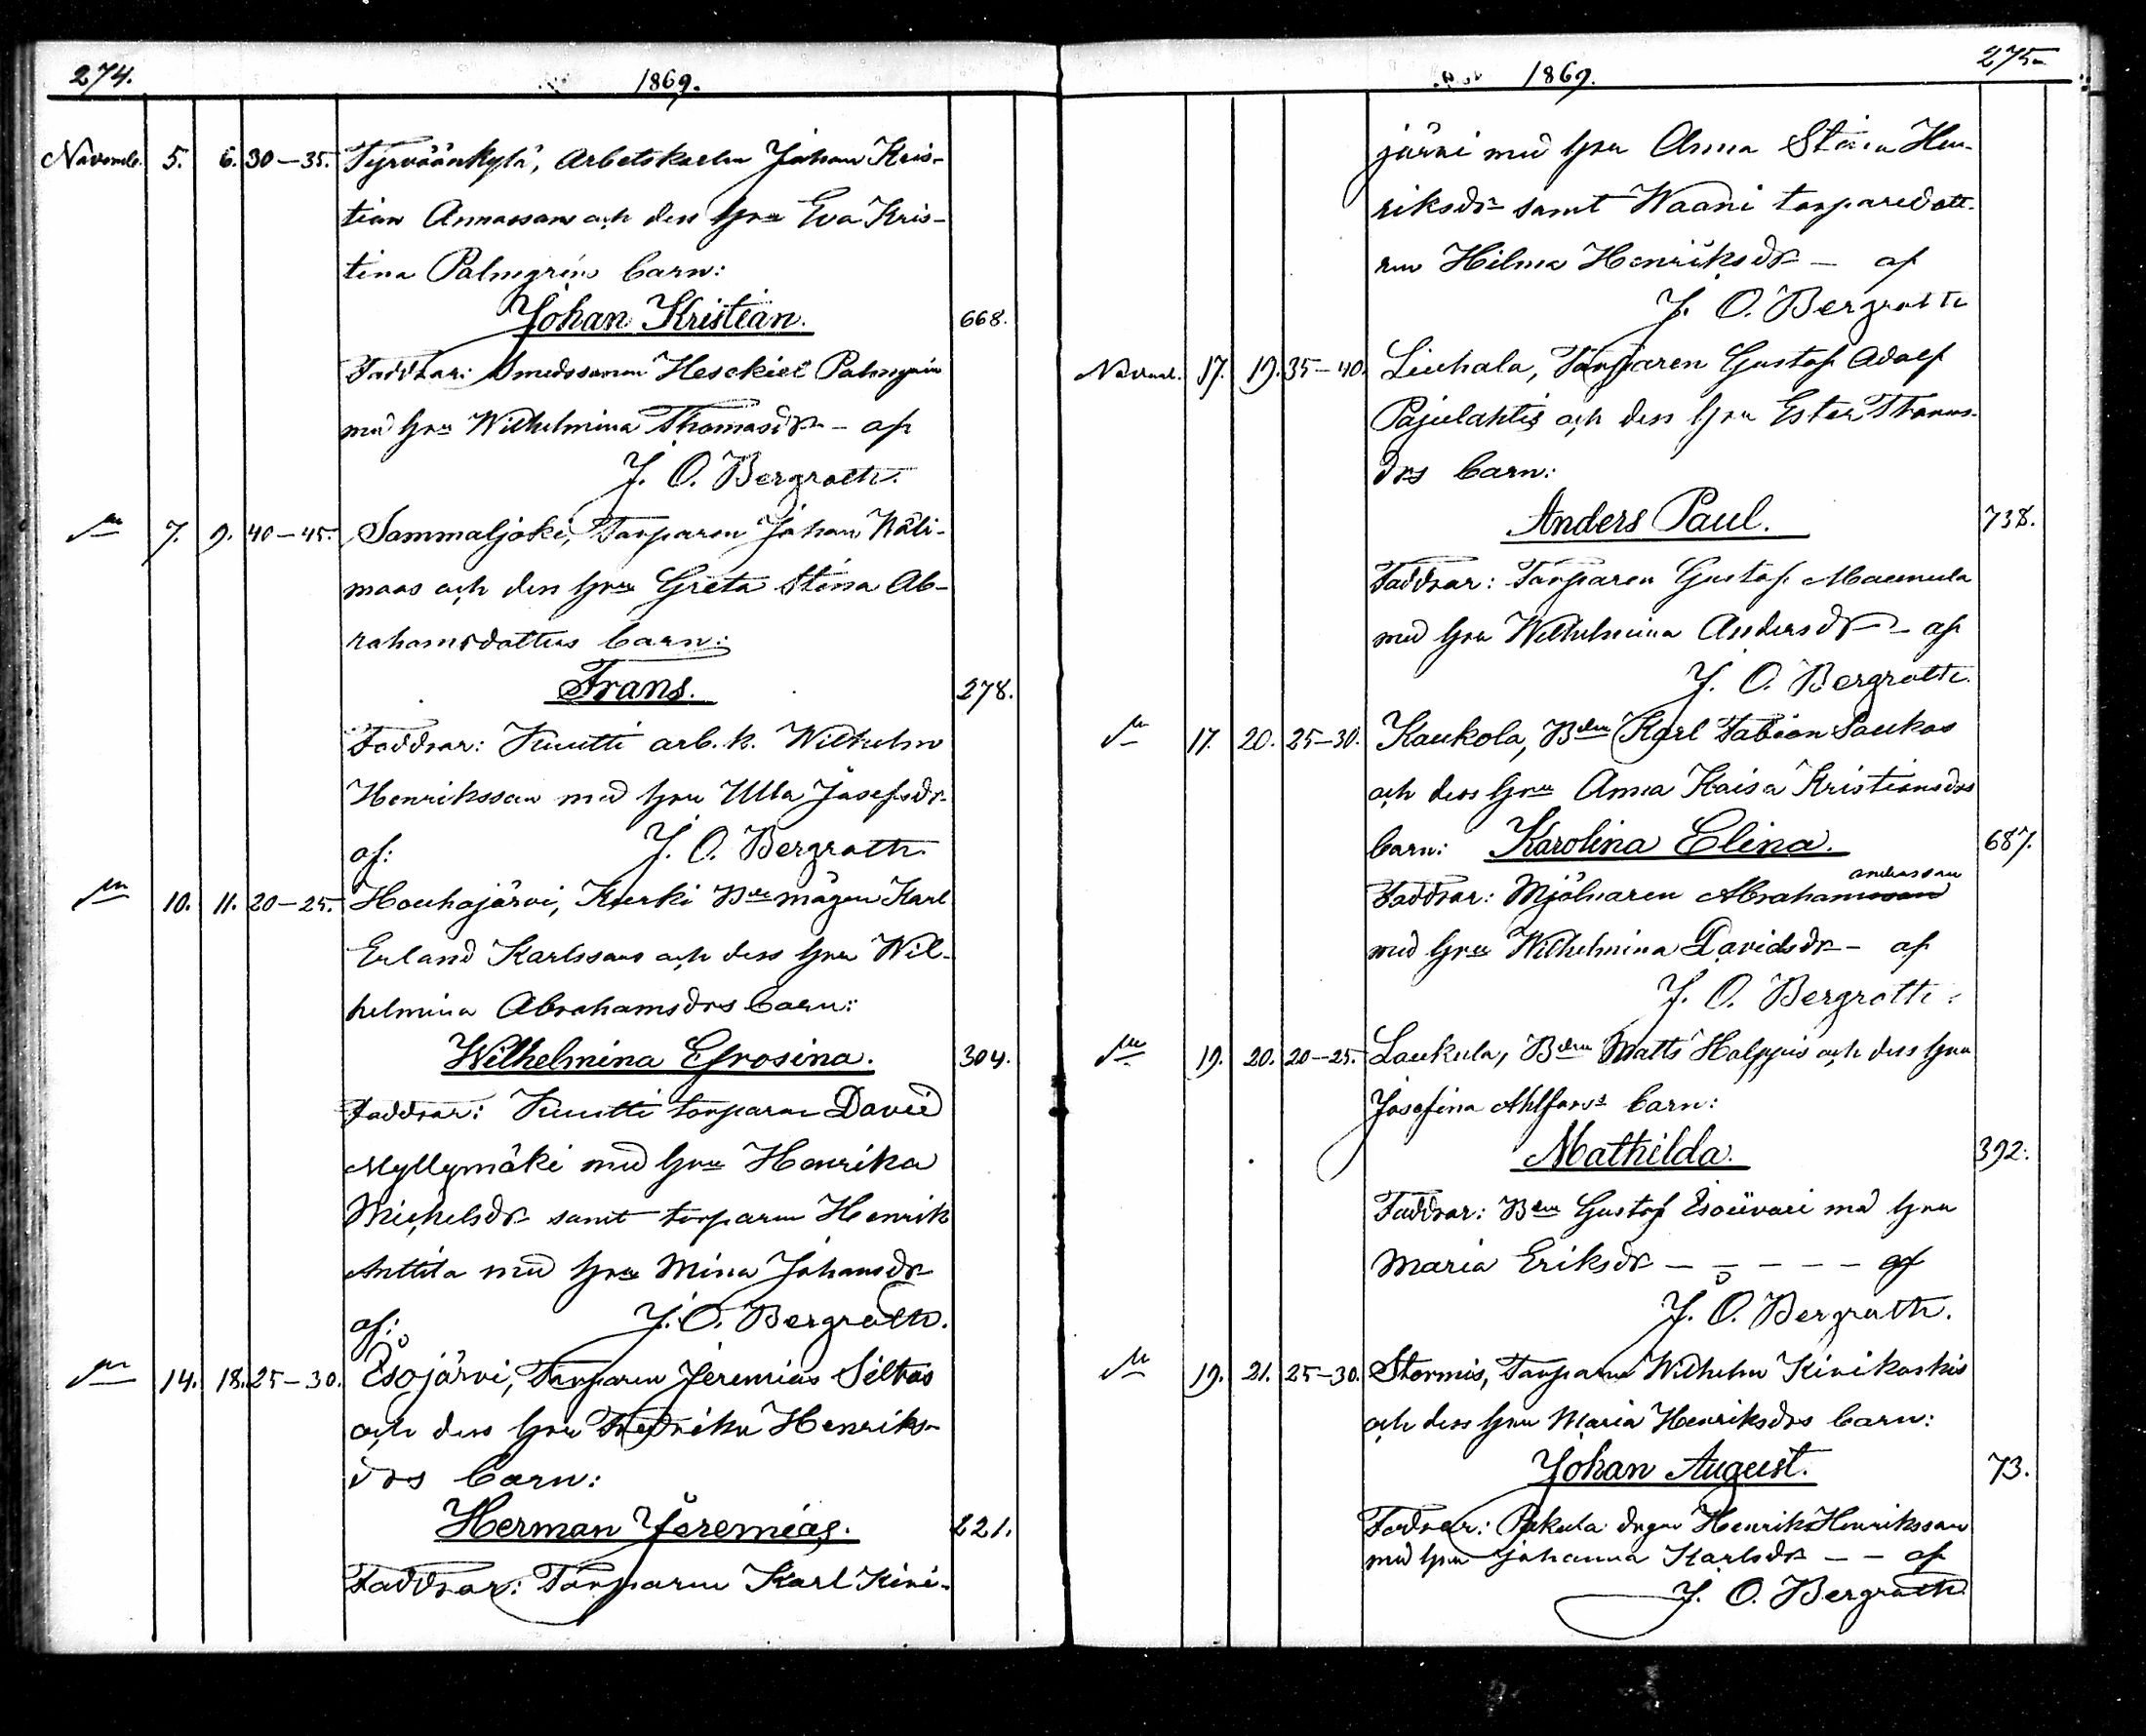 274.
1869.
Novemb. 5. 6. 30-35. Tyrväänkylä, Arbetskarlen Johan Kris-
tian Annassons och dess hru Eva Kris-
tina Palmgrens barn:
Johan Kristian. 668.
Faddrar: Smedssonen Heskiel Palmgrén
med hru Wilhelmina Thomasdr - af
J. O. Bergroth.
7. 9. 40-45. Sammaljoki, Torparen Johan Wäli-
maas och dess hru Greta Stina Ab-
rahamsdotters barn:
Frans. 278.
Faddrar: Knutti arb.k. Wilhelm
Henriksson med hru Ulla Josefsdr
af: J. O. Bergroth.
10. 11. 20-25. Houhajärvi, Kurki Bde mågen Karl
Erland Karlssons och dess hru Wil-
helmina Abrahamsdrs barn:
Wilhelmina Efrosina. 304.
Faddrar: Knutti torparen David
Myllymäki med hru Henrika
Michelsdr samt torparen Henrik
Anttila med hru Mina Johansdr
af: J. O. Bergroth.
14. 18. 25-30. Esojärvi, Torparen Jeremias Siltas
och dess hru Fredrika Henriks-
drs barn:
Herman Jeremias. 221.
Faddrar: Torparen Karl Kivi-
275
1869.
järvi med hru Anna Stina Hen-
riksdr samt Waani torparedott-
ren Hilma Henriksdr - af
J. O. Bergroth
Novemb. 17. 19. 35-40. Liuhala, Torparen Gustaf Adolf
Pajulahtis och dess hru Ester Thomas-
drs barn:
Anders Paul. 738.
Faddrar: Torparen Gustaf Maunula
med hru Wilhelmina Andersdr - af
J. O. Bergroth.
17. 20. 25-30. Kaukola, Bden Karl Fabian Paukas
och dess hru Anna Kaisa Kristiansdrs
barn: Karolina Elina. 687.
Faddrar: Mjölnaren Abrahamsson
med hru Wilhelmina Davidsdr - af
J. O. Bergroth.
19. 20. 20-25. Laukula, Bden Matts Halppis och dess hru
Josefina Ahlfors barn:
Mathilda. 392.
Faddrar: Bden Gustaf med hru
Maria Eriksdr - - - - - af
J. O. Bergroth.
19. 21. 25-30. Stormis, Torparen Wilhelm Kivikoskis
och dess hru Maria Henriksdrs barn:
Johan August. 73.
Faddrar: Pukula drgen Henrik Henriksson
med hru Johanna Karlsdr - - af
J. O. Bergroth